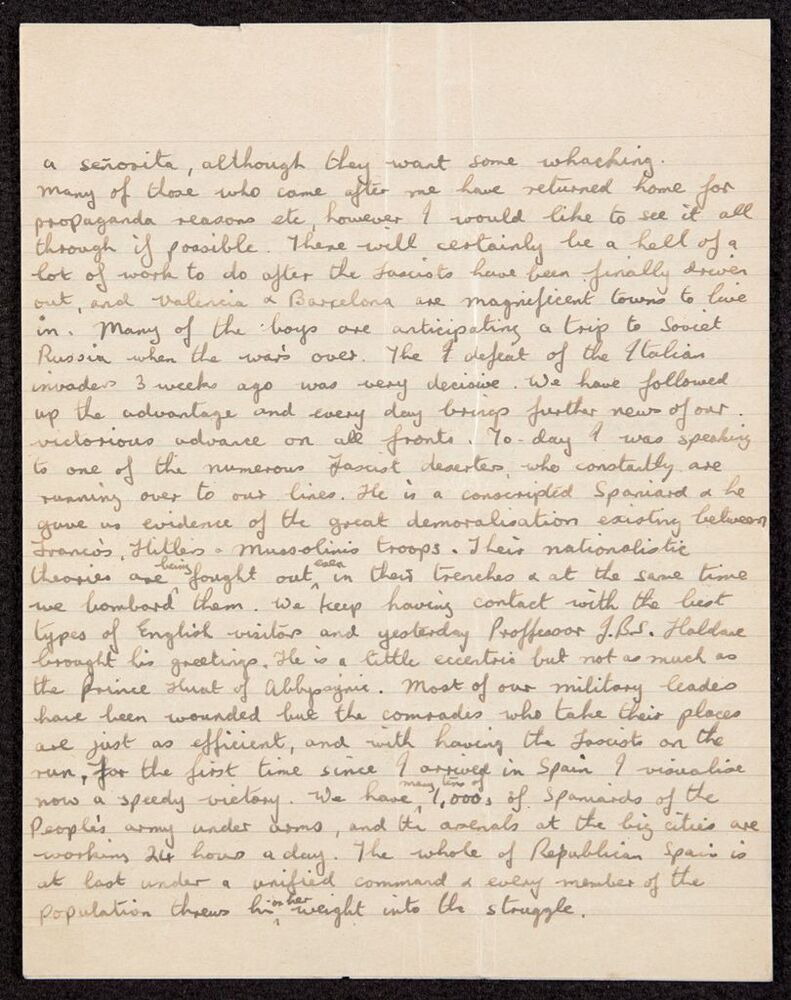 a señorita, although they want some whacking.
Many of those who came after me have returned home for
propaganda reasons etc, however I would like to see it all
through if possible. There will certainly be a hell of a
lot of work to do after the Fascists have been finally driven
out, and Valencia & Barcelona are magnificent towns to live
in. Many of the boys are anticipating a trip to Soviet
Russia when the war's over. The defeat of the Italian
invaders 3 weeks ago was very decisive. We have followed
up the advantage and every day brings further news of our
victorious advance on all fronts. To-day I was speaking
to one of the numerous Fascist deserters, who constantly are
running over to our lines. He is a conscripted Spaniard & he
gave us evidence of the great demoralisation existing between
Franco's, Hitlers & Mussolinis troops. Their nationalistic
theories are being fought out even in their trenches & at the same time
we bombard them. We keep having contact with the best
types of English visitors and yesterday Proffessor J.B.S. Haldane
brought his greetings. He is a little eccentric but not as much as
the Prince of Abbysynic. Most of our military leaders
have been wounded but the comrades who take their places
are just as efficient, and with having the Fascists on the
run, for the first time since I arrived in Spain I visualise
now a speedy victory. We have many tens of 1,000s of Spaniards of the
People's army under arms, and the arsenals at the big cities are
working 24 hours a day. The whole of Republican Spain is
at last under a unified command & every member of the
population throws his or her weight into the struggle.